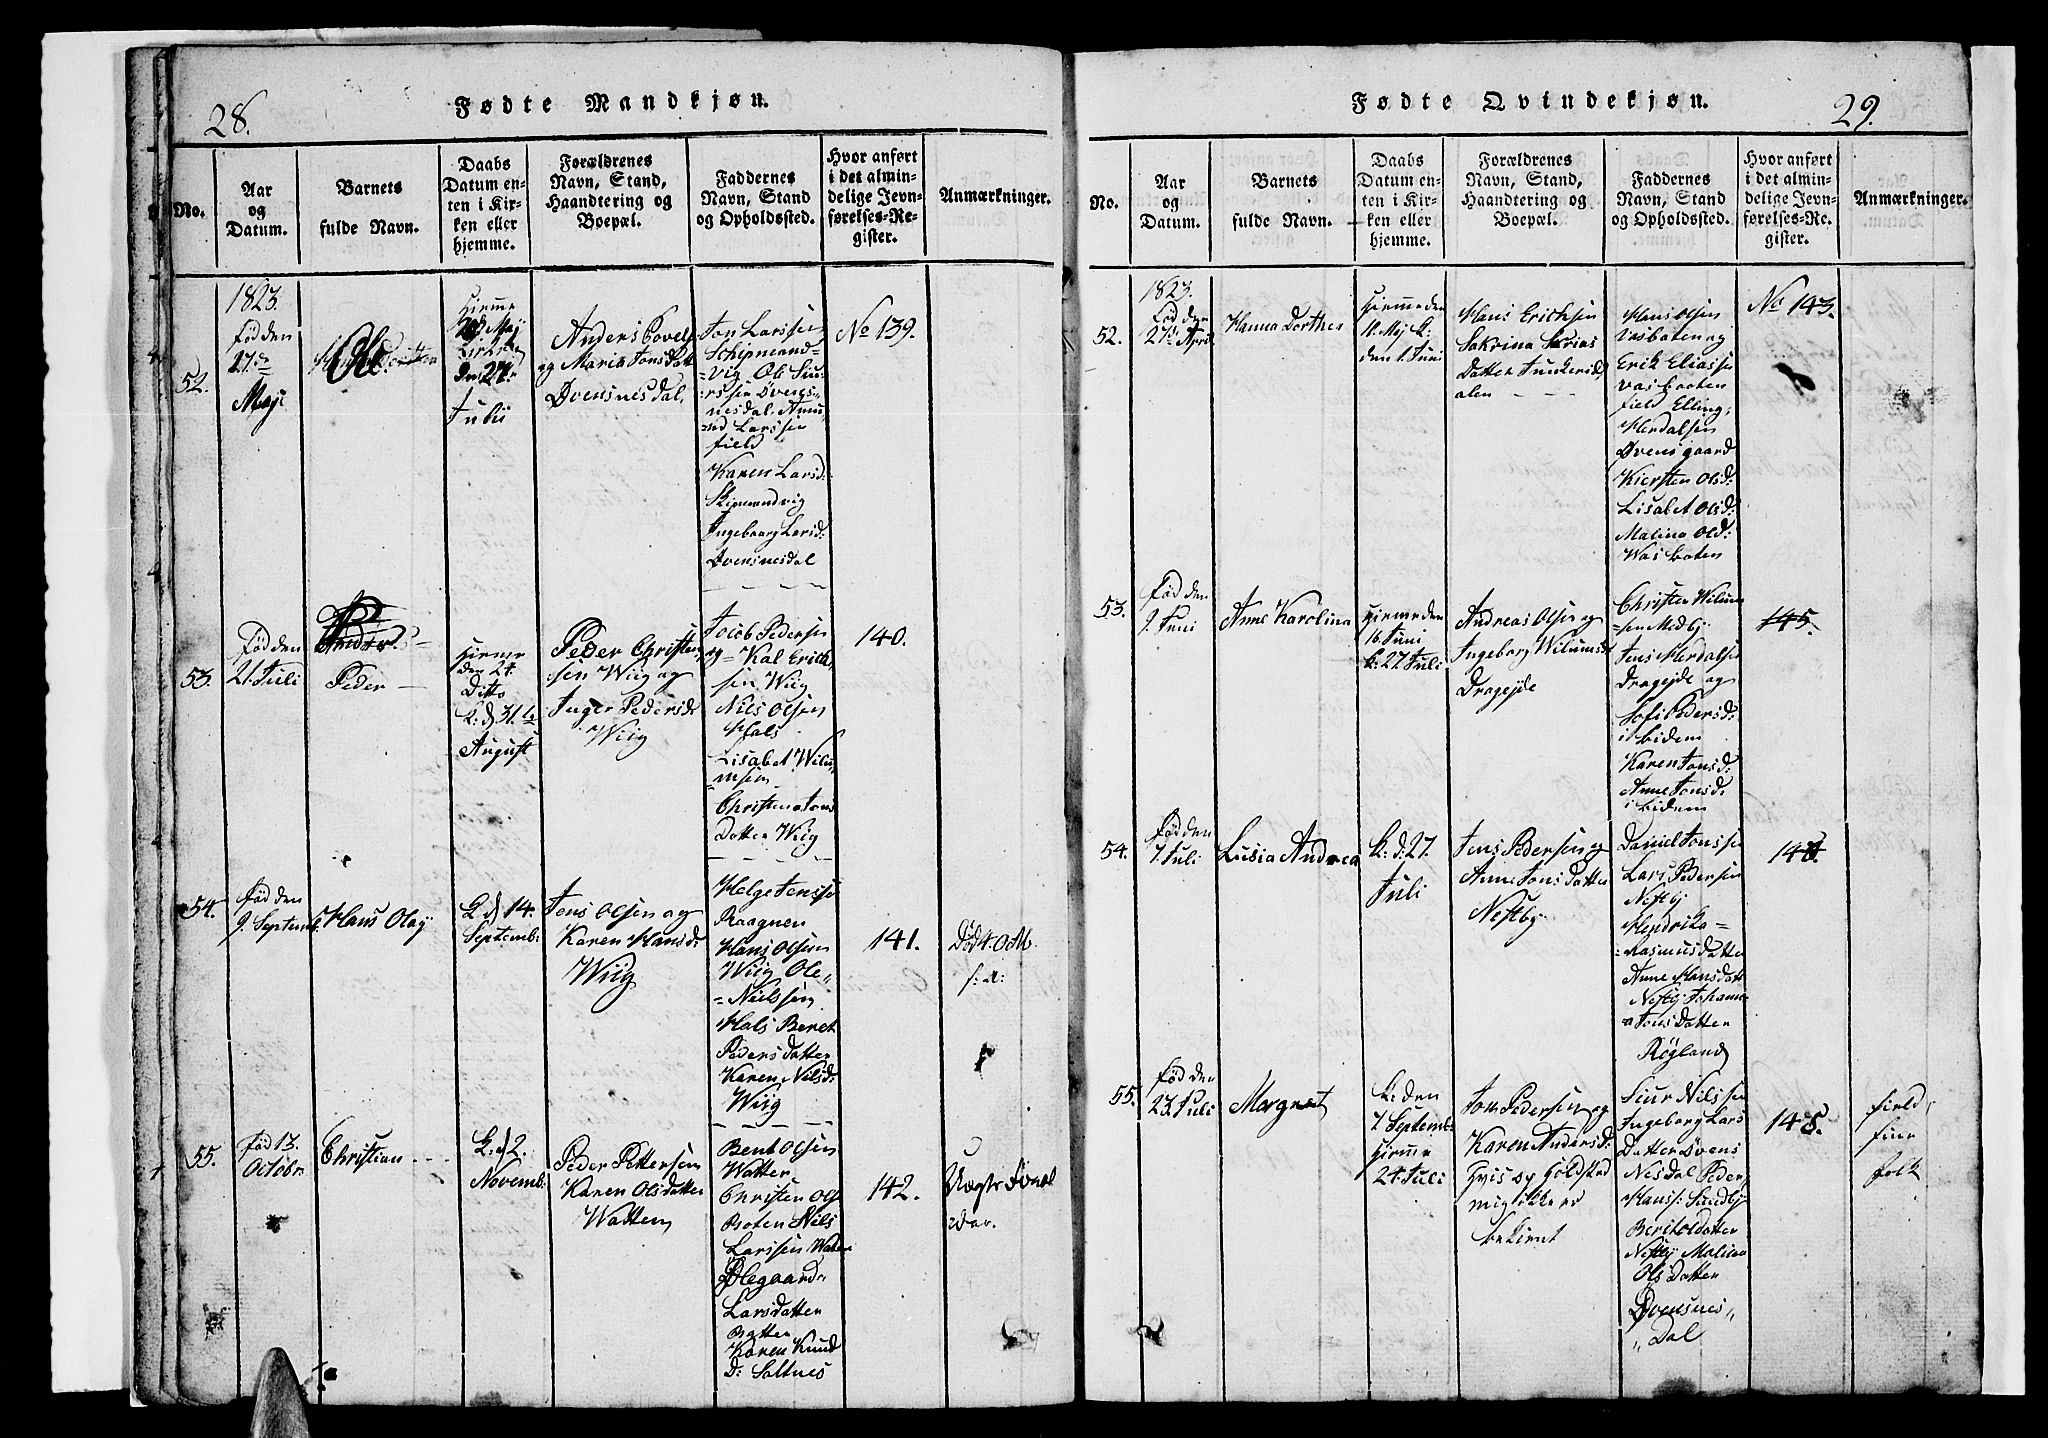 28.
Fødte Mandkjøn.
No.
Aar
og
Datum.
Barnets
fulde Navn.
Daabs
Datum en-
ten i Kir-
ken eller
hjemme.
Forældrenes
Navn, Stand,
Haandtering og
Boepæl.
Faddernes
Navn, Stand
og Opholdssted.
Hvor anført
i det almin-
delige Jevn-
førelses-Re-
gister.
Anmærkninger.
52.
1823.
fød den
27de
Maji
Ole
Hiemme
Maij
Kirken
den 27
Julii
Anders Povels
og Maria Jonsdat
Svensnesdal,
Jon Larssen
Schipmand-
=vig Ole Siu-
rssen Svens-
nesdal. Amu-
nd Larssen
field
Karen Larsd:
Skipmandvig
Ingeboarg Larsd:
Svensnesdal
No 139.
53.
fød den
21 Juli
Peder
Hieme
den 24.
Ditto
K: d 31te
August
Peder Christen
sen Wiig og
Inger Pedersd
Wiig
Jocob Pedersen
og Kal Erich
sen Wiig
Nils Olsen
Hals
Lisabet Wilu
msen
Christen a Jons
Datter Wiig
140.
54.
fød den
9. Septemb.
Hans Olaÿ
K. d 14.
Septemb:
Jens Olsen og
Karen Hansd:
Wiig
Helge Jenssen
Raagnen
Hans Olsen
Wiig Ole
=Nielssen
Hals Beret
Peders datter
Karen Nilsd:
Wiig
141.
Død 4. O. M.
s: a:
55.
fød 13.
Octobr
Christian
K. d 2.
Novemb:
Peder Pettersen
Karen Olsdatter
Watten
Bent Olsen
Watten
Christen Ols
Boten Nils
Larssen Waten
Ølegaard
Larsdatter
Batten
Karen Knud
D: Saltnes
142.
29.
Fødte Qvindekjøn.
No.
Aar
og
Datum.
Barnets
fulde Navn.
Daabs
Datum en-
ten i Kir-
ken eller
hjemme.
Forældrenes
Navn, Stand,
Haandtering og
Boepæl.
Faddernes
Navn, Stand
og Opholdssted.
Hvor anført
i det almin-
delige Jevn-
førelses-Re-
gister.
Anmærkninger.
52.
1823.
fød den
27de April
Hanna Dorthea
Hiemme den
11. Mej k:
den 1. Juni
Hans Erichsen
Sakrina Sarias
Datter Junkersd
alen
Hans Olsen
Vasbaten og
Erik Eliassen
Vasbaaten
field Elling
Herdalsen
Svensgaard
Kiersten Olsd:
Lisabet Olsd:
Malina Olsd:
Was baten
No 143.
53.
fød den
9. Juni
Anne Karolina
Hieme den
16 Juni
k: 27 Juli
Andreas Olsen og
Ingeborg Wilumsd
Dragejde
Christen Wilum
=sen Medbÿ
Jens Herdalsen
Dragejde og
Sofi Pedersd:
ibidem
Karen Jonsd:
Anne Jonsd:
ibidem
145.
54.
fød den
7. Juli
Lusia Andrea
k: d: 27.
Juli
Jens Pedersen og
Anne Jons datter
Nestbÿ
Daniel Jonssen
Lars Pedersen
Nestbÿ
Hendrika=
=Rasmusdatter
Anne Hansdatt
Nestbÿ Johann
a Jonsdatter
Røgland
55.
fød den
23. Juli
Margret
k: den
7. Septemb.
Hieme
24. Juli
Jon Pedersen og
Karen Andersd:
Hvis og Holdstad
mig ikke er
bekient
Siur Nilssen
Ingeborg Lars
Datter Svens
Nesdal Peder
Hanss: Sundbÿ
Berit oldatter
Nestbÿ Malina
Ols datter
Svensnes
Dal
145.
field
fine
folk